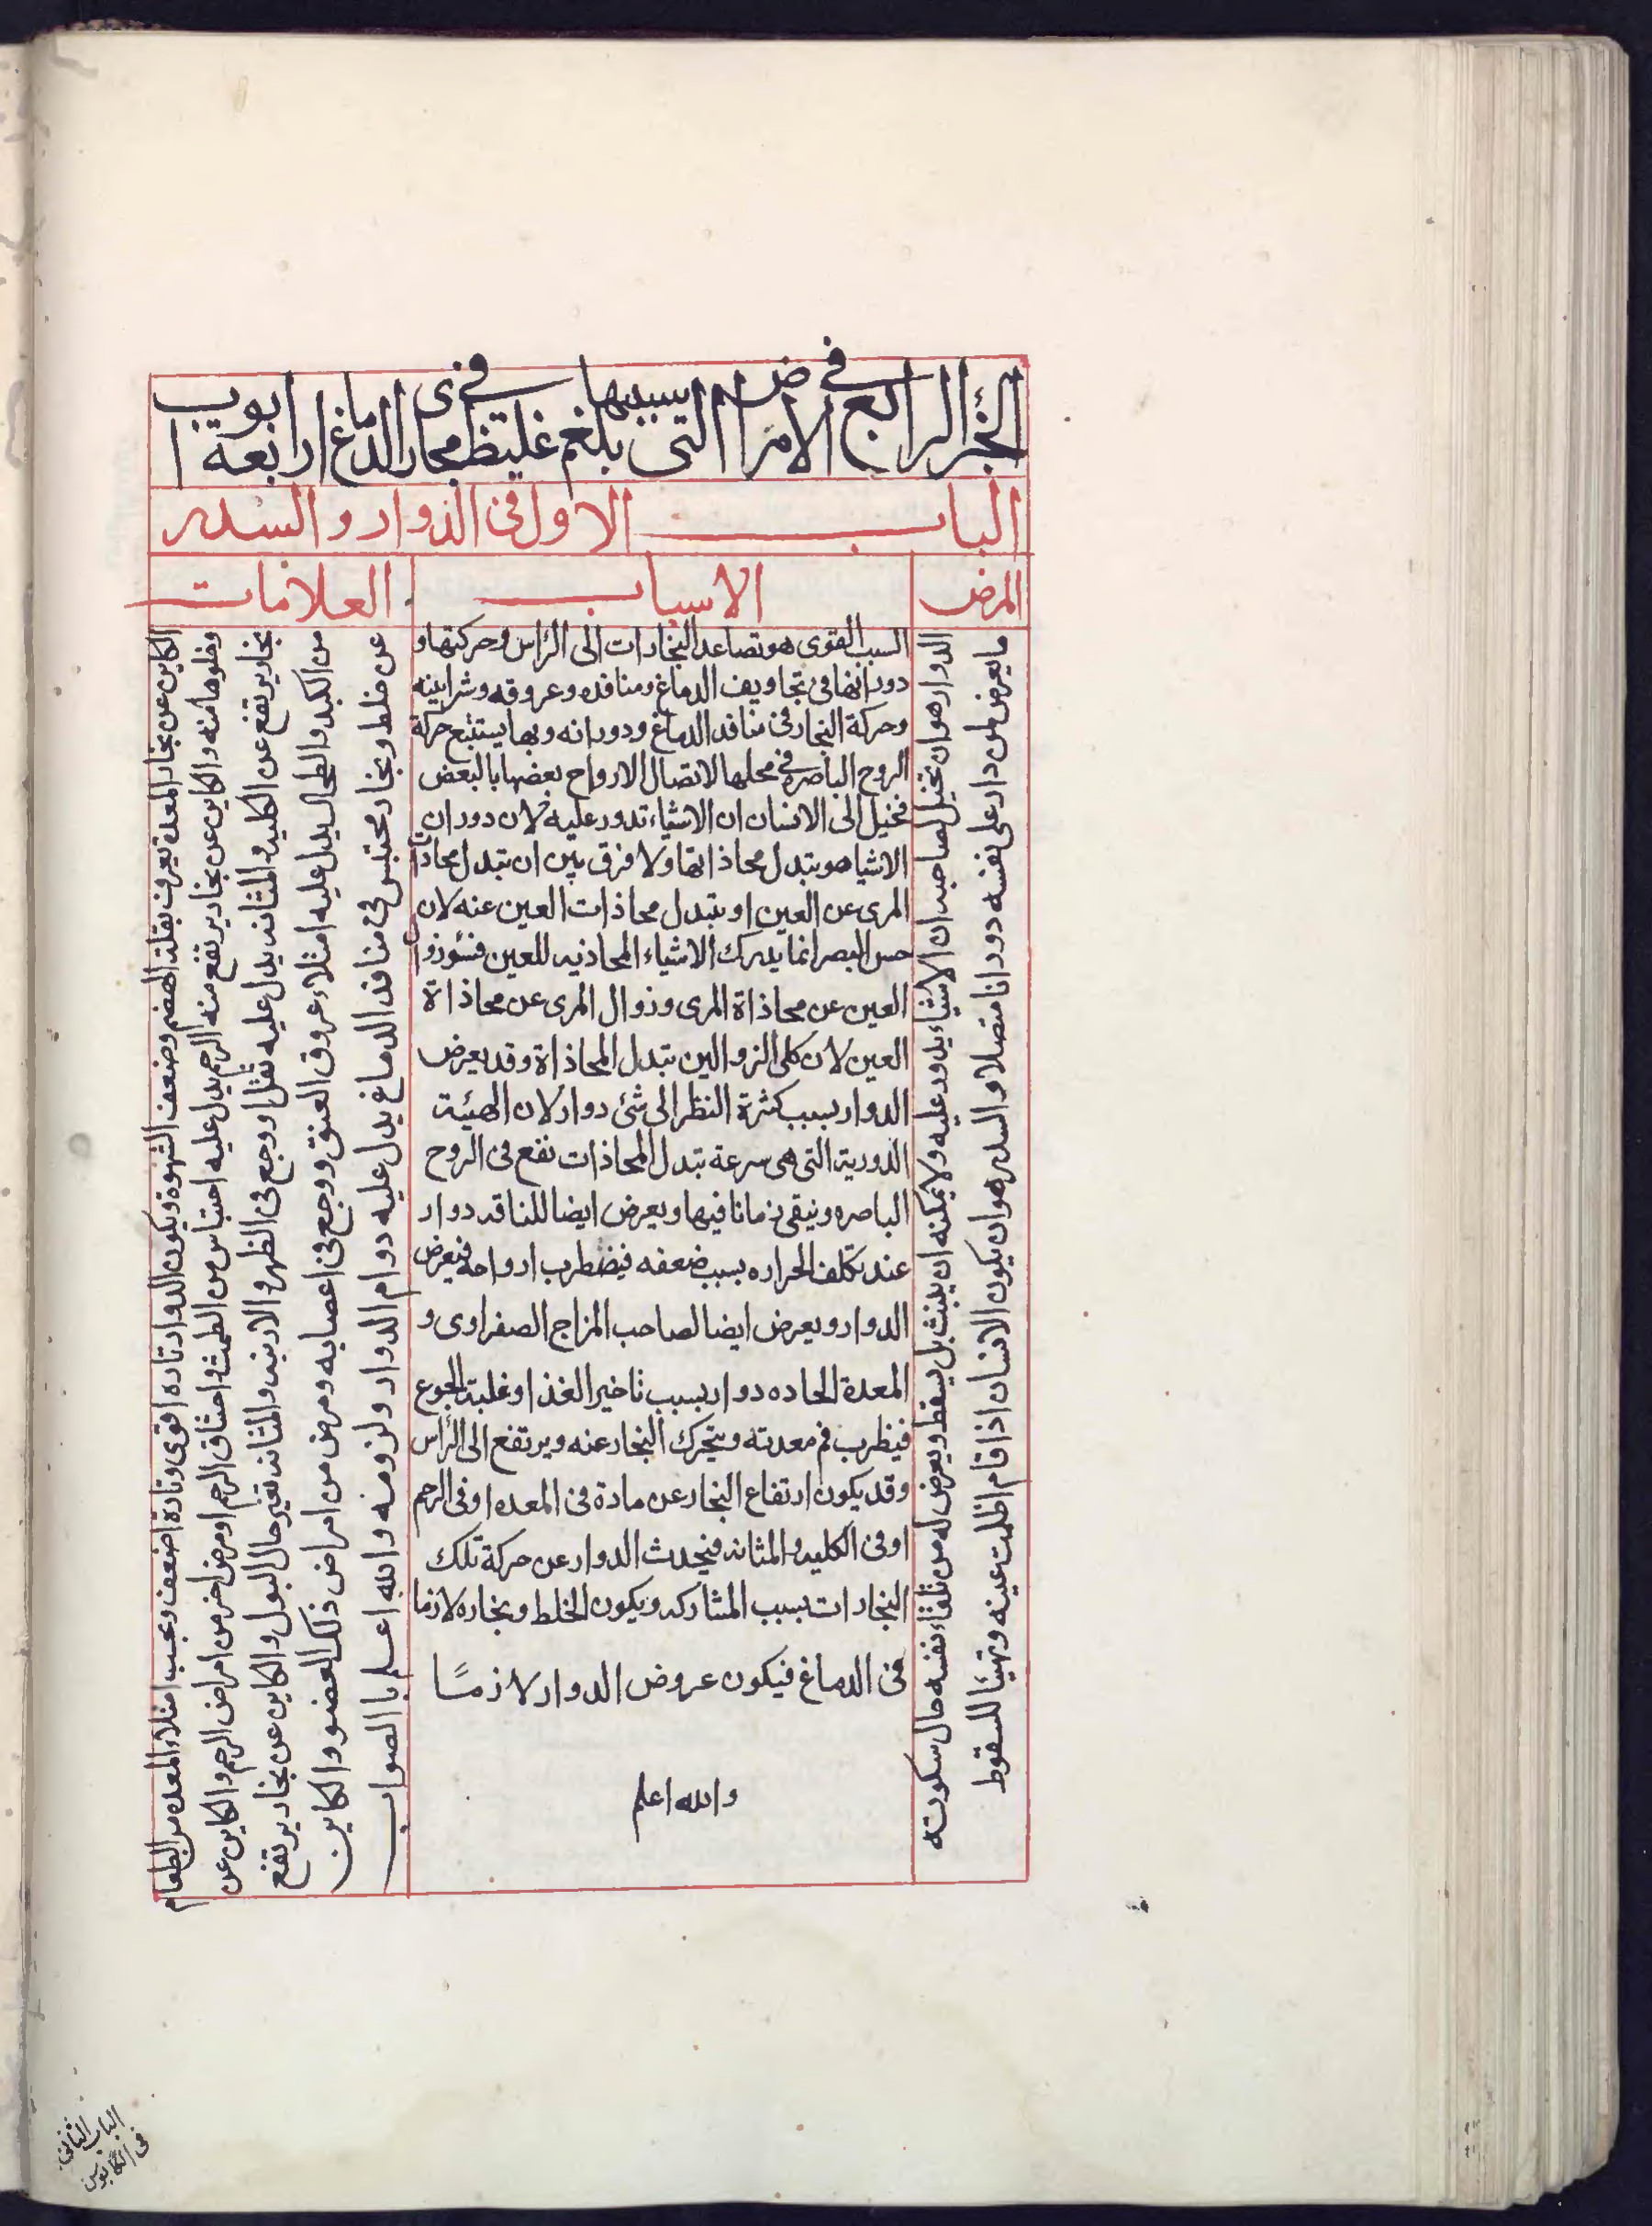 الجزء الرابع في الامراض التى يسببها بلغم غليظ في مجارى الدماغ ابواب اربعة
الباب الاول فى الدوار والسدر
المرض
الاسباب
العلامات
الدوار هو ان يتخيل لصاحبه ان الاشياء يدور عليه ولا يمكنه ان يثبت بل يسقط ويعرض له من تلقاء نفسه حال سكوته
ما يعرض لمن دار على نفسه دورانا متصلا والسدر هو ان يكون الانسان اذا قام اظلمت عينه وتهيئا للسقوط
السبب القوى هو تصاعد البخارات الى الرٔاس وحركتها و
دورانها فى تجاويف الدماغ ومنافده وعروقه وشرايينه
وحركة البخار فى منافد الدماغ ودورانه وبها يستتبع حركة
الروح الباصره في محلها لاتصال الارواح بعضها بالبعض
فتخيل الى الانسان ان الاشياء تدور عليه لان دوران
الاشيا هو بتدل محاذاتها ولا فرق بين ان تبدل محاذات
المرى عن العين او بتبدل محاذات العين عنه لان
حس البصر انما يدرك الاشياء المحاذيه للعين
العين عن محاذاة المرى وزوال المرى عن محاذاة
العين لان كلى الزوالين تبدل المحاذاة وقد يعرض
الدوار بسبب كثرة النظر الى شئ دوار لان الهيئة
الدورية التى هى سرعة بتدل المحاذات تقع فى الروح
الباصره وتيقى زمانا فيها ويعرض ايضا للناقه دوار
عند تكلف الحراره بسبب ضعفه فيضطرب ارواحه فيعرض
الدوار ويعرض ايضا لصاحب المزاج الصفراوى و
المعدة الحاده دوار بسبب تاخير الغذا وغلبة الجوع
فيظرب فم معدته ويتحرك البخار عنه ويرتفع الى الرٔاس
وقد يكون ارتفاع البخار عن مادة فى المعده او فى الرحم
او فى الكليه والمثانه فيحدث الدوار عن حركة تلك
البخارات بسبب المشاركه ويكون الخلط وبخاره لازما
فى الدماغ فيكون عروض الدوار لازمًا
والله اعلم
الكاين عن بخار المعدة يعرف بقلة الهضم وضعف الشهوة ويكون الدوار تاره اقوى وتارة اضعف وبحسب امتلاء المعده من الطعام
وخلوها منه والكاين عن بخار يرتفع منه الرحم يدل عليه احتباس من الطمث واختناق الرحم او مرض اخر من امراض الرحم والكاين عن
بخار يرتفع عن الكليه والمثانه يدل عليه ثقل او وجع فى الظهر والاربيه والمثانه تغير حال البول والكاين عن بخار يرتفع
من الكبد والطحال يدل عليه امتلاء عروق العنق ووجع فى اعصابه ومرض من امراض ذلك العضو والكاين
عن خلط وبخار محتبس فى منافذ الدماغ يدل عليه دوام الدوار ولزومه والله اعلم بالصواب
الباب الثانى
فى الكابوس